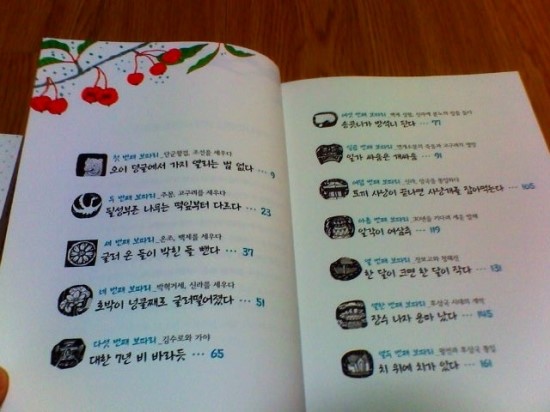 첫 번째 보따리_단군할범, 조선을 세우다
오이 덩굴에서 가지 열리는 법 없다 … 9
두 번째 보따리_주몽, 고구려를 세우다
될성부른 나무는 떡잎부터 다르다 … 23
세 번째 보따리_온조, 백제를 세우다
굴러 온 돌이 박힌 돌 뺀다 … 37
네 번째 보따리_박혁거세, 신라를 세우다
호박이 넝쿨째로 굴러떨어졌다 … 51
다섯 번째 보따리_김수로와 가야
대한 7년 비 바라듯 … 65
여섯 번째 보따리_
솜뭉치가 … 77
일곱 번째 보따리_
일가 싸움은 개싸움 … 91
여덟 번째 보따리_신라, 삼국을 통일하다
토끼 사냥이 끝나면 사냥개를 잡아먹는다 … 105
아홉 번째 보따리_
일각이 여삼추 … 119
열 번째 보따리_장보고와 청해진
한 달이 크면 한 달이 작다 … 131
열한 번째 보따리_후삼국 시대의 개막
장수 나자 용마 났다 … 145
열두 번째 보따리_왕건과 후삼국 통일
치 위에 치가 있다 … 161